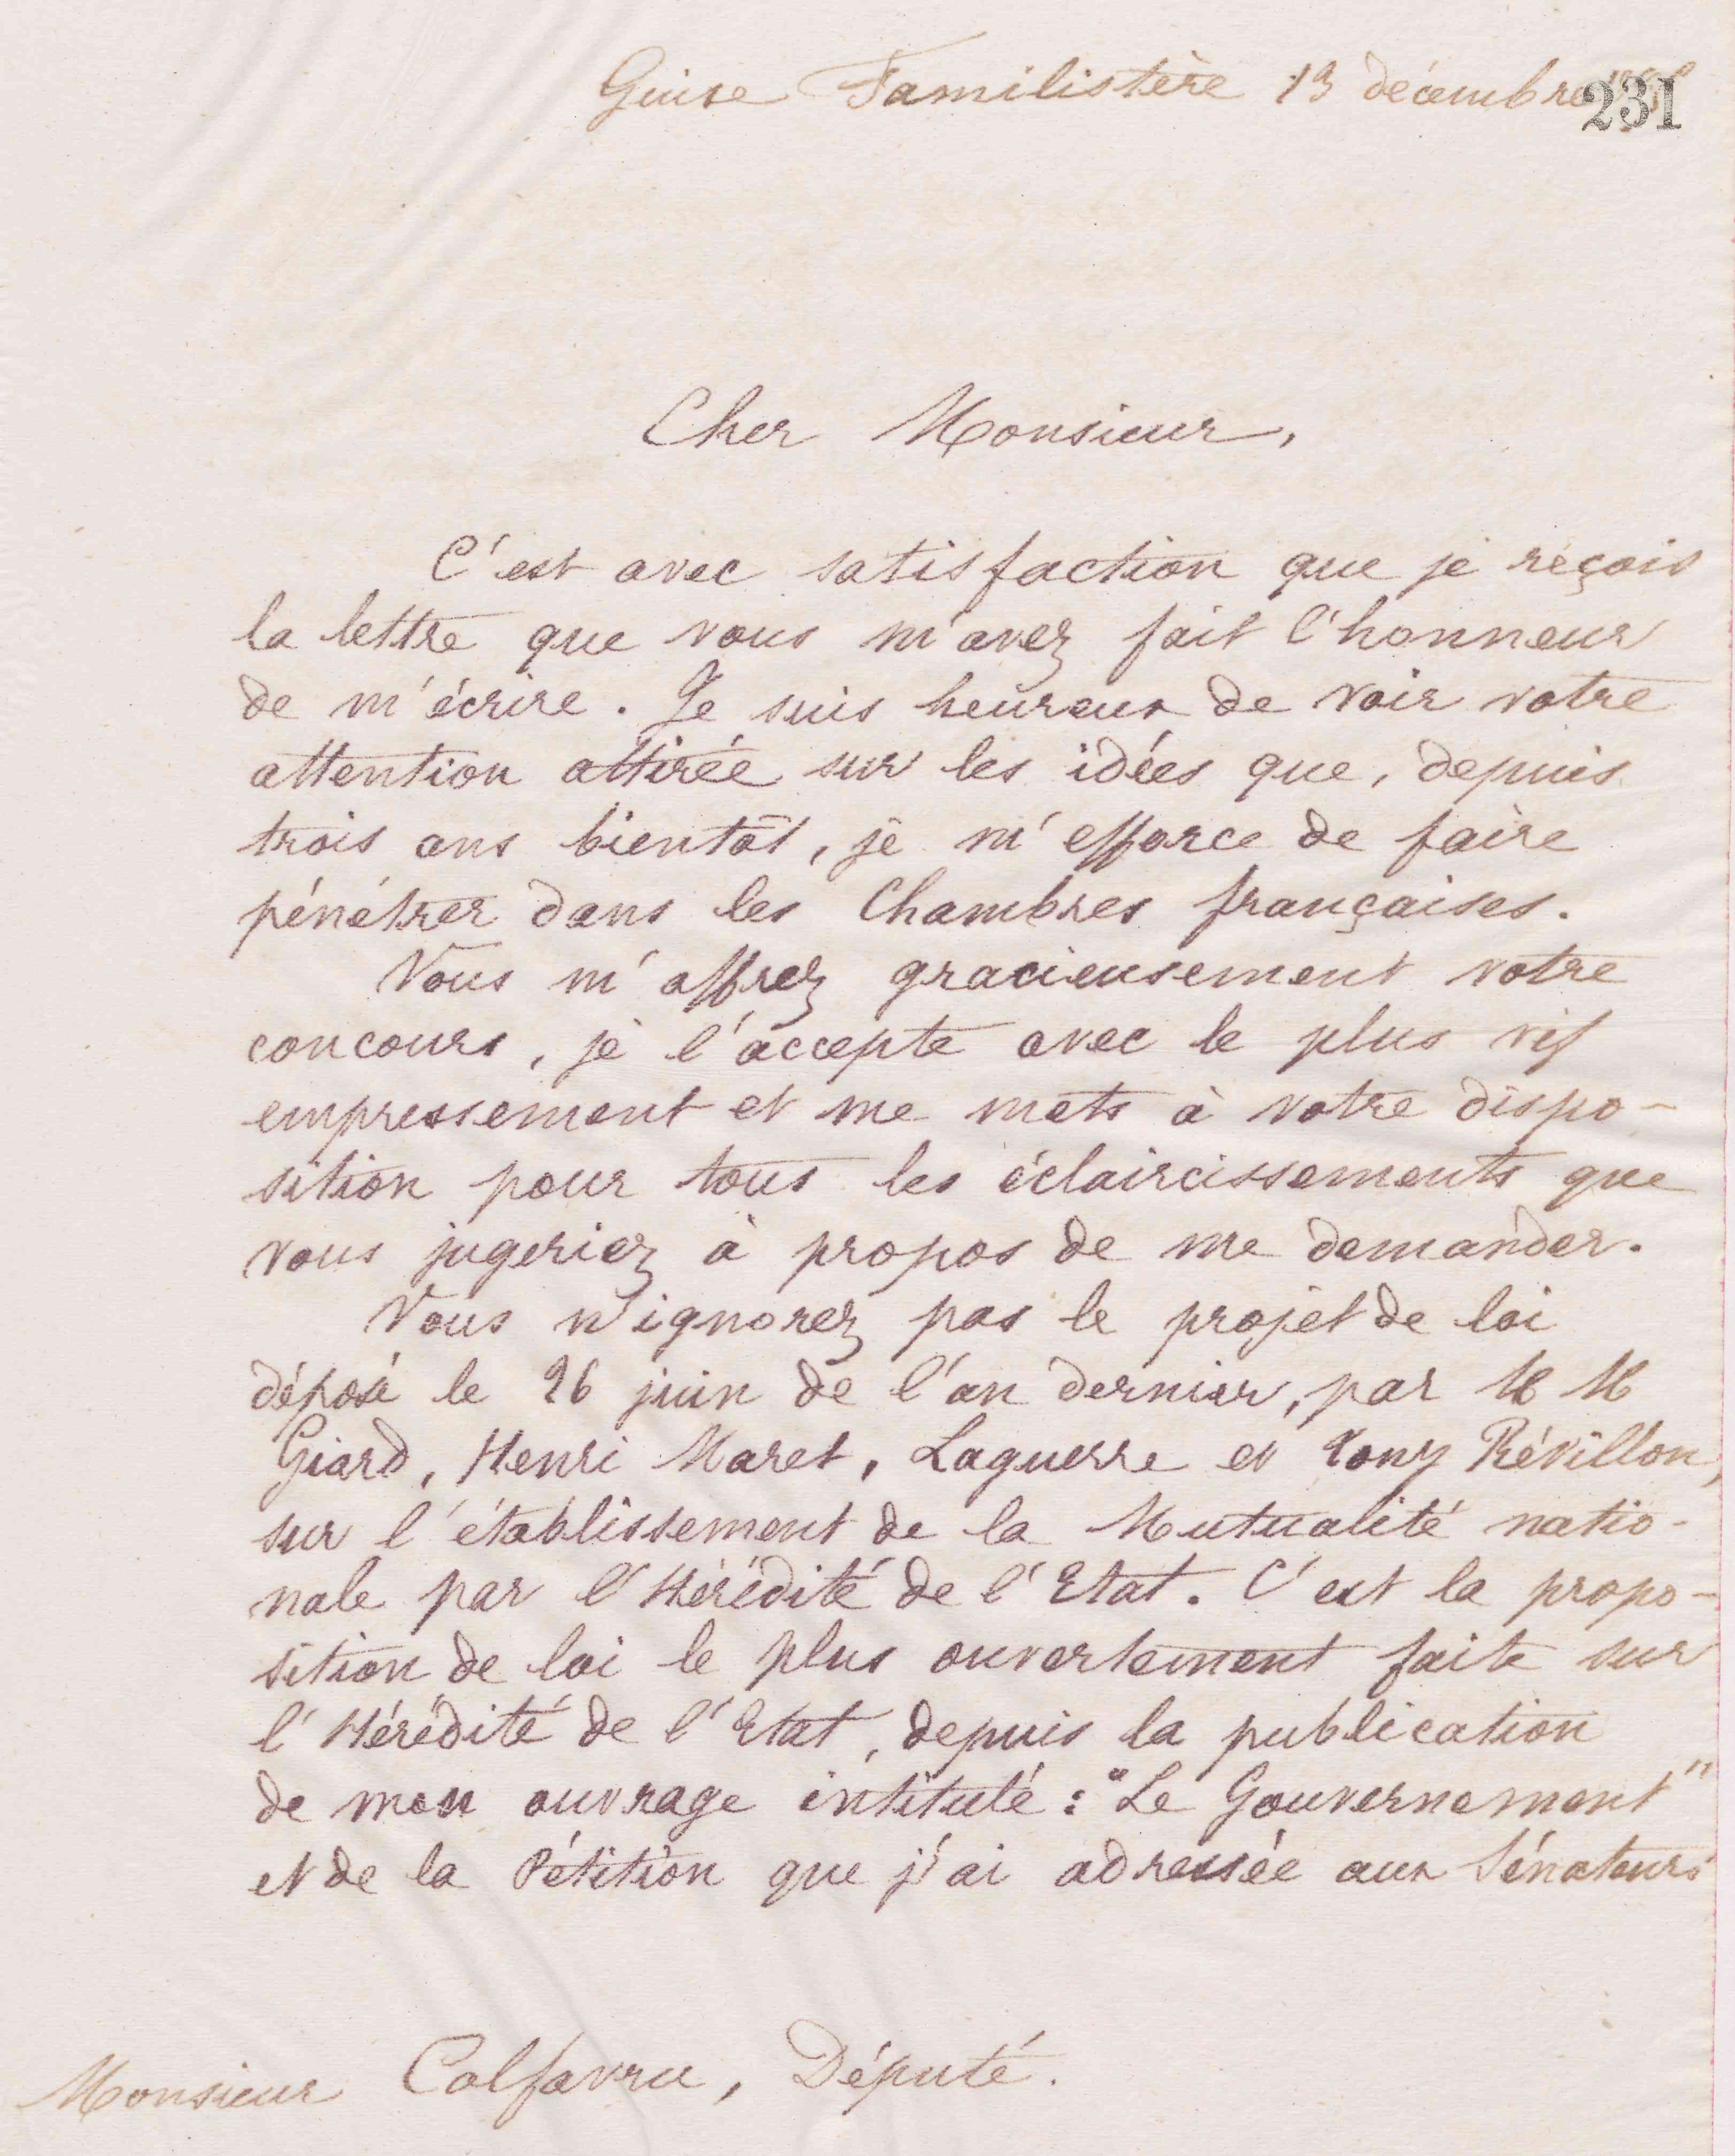 Guise Familistère 13 décembre
231
Cher Monsieur,
C'est avec satisfaction que je reçois
la lettre que vous m'avez fait l'honneur
de m'écrire. Je suis heureux de voir votre
attention attirée sur les idées que, depuis
trois ans bientôt, je m'efforce de faire
pénétrer dans les Chambres françaises.
Vous m'offrez gracieusement votre
concours, je l'accepte avec le plus vif
empressement et me mets à votre dispo-
sition pour tous les éclaircissements que
vous jugeriez à propos de me demander.
Vous n'ignorez pas le projet de loi
déposé le 26 juin de l'an dernier, par M M
Giard, Henri Maret, Laguerre et Tony Révillon,
sur l'établissement de la Mutualité natio-
nale par l'Hérédité de l'Etat. C'est la propo-
sition de loi le plus ouvertement faite sur
l'Hérédité de l'Etat, depuis la publication
de mon ouvrage intitulé : "Le Gouvernement"
et de la Pétition que j'ai adressée aux Sénateurs
Monsieur Colfavru, Député.